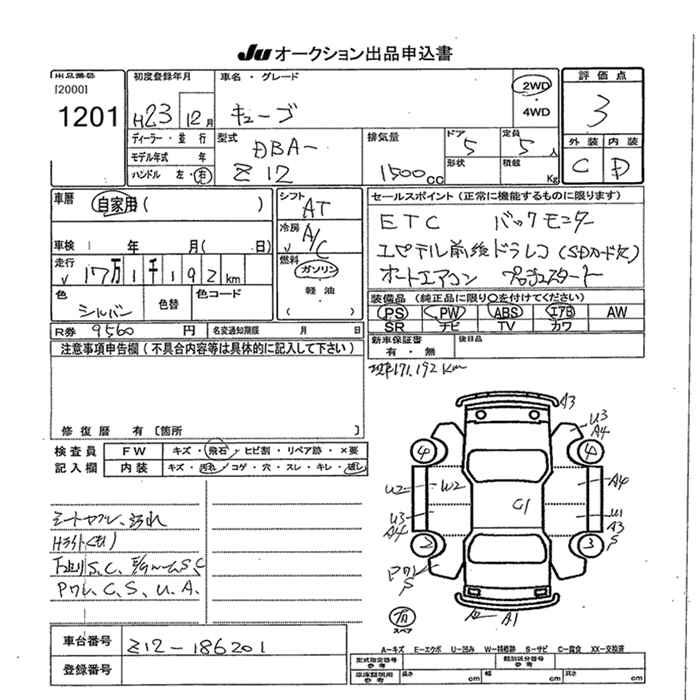 JU オークション出品申込書
出品番号
[2000]
1201
初度登録年月
H23年 12月
車名・グレード
キューブ
2WD
・
4WD
評価点
3
外装 内装
C D
ディーラー・並行
モデル年式 年
ハンドル 左・右
型式
DBA-
Z12
排気量
1500cc
ドア
5
定員
5人
形状
積載
Kg
車歴
自家用( )
車検 年 月( 日)
走行
17万1千192km
色
シルバー
色替
色コード
R券 9560円
名変通知期限 月 日
シフト
AT
冷房
A/C
燃料
ガソリン
・
軽油
( )
セールスポイント(正常に機能するものに限ります)
ETC バックモニター
前後ドラレコ(SDカード欠)
オートエアコン プッシュスタート
装備品(純正品に限り○を付けてください)
PS PW ABS エアB AW
SR ナビ TV カワ
新車保証書
有・無
後日品
171,192km
注意事項申告欄(不具合内容等は具体的に記入して下さい)
修復歴 有[箇所 ]
検査員
記入欄
FW キズ・飛石・ヒビ割・リペア跡・×要
内装 キズ・汚れ・コゲ・穴・スレ・キレ・破し
シートヤブレ、汚れ
Hライトくもり
下廻りS.C. E/GルームS.C
Pワレ、C、S、U、A.
A3
U3
A4
4
4
U2
W2
G1
A4
U3
A4
U1
A3
S
2
3
Pワレ
S
A2
A1
スペア
車台番号
Z12-186201
登録番号
A…キズ E…エクボ U…凹み W…補修跡 S…サビ C…腐食 XX…交換済
型式指定番号
参考
類別区分番号
参考
車庫証明用
参考
長さ cm 幅 cm 高さ cm